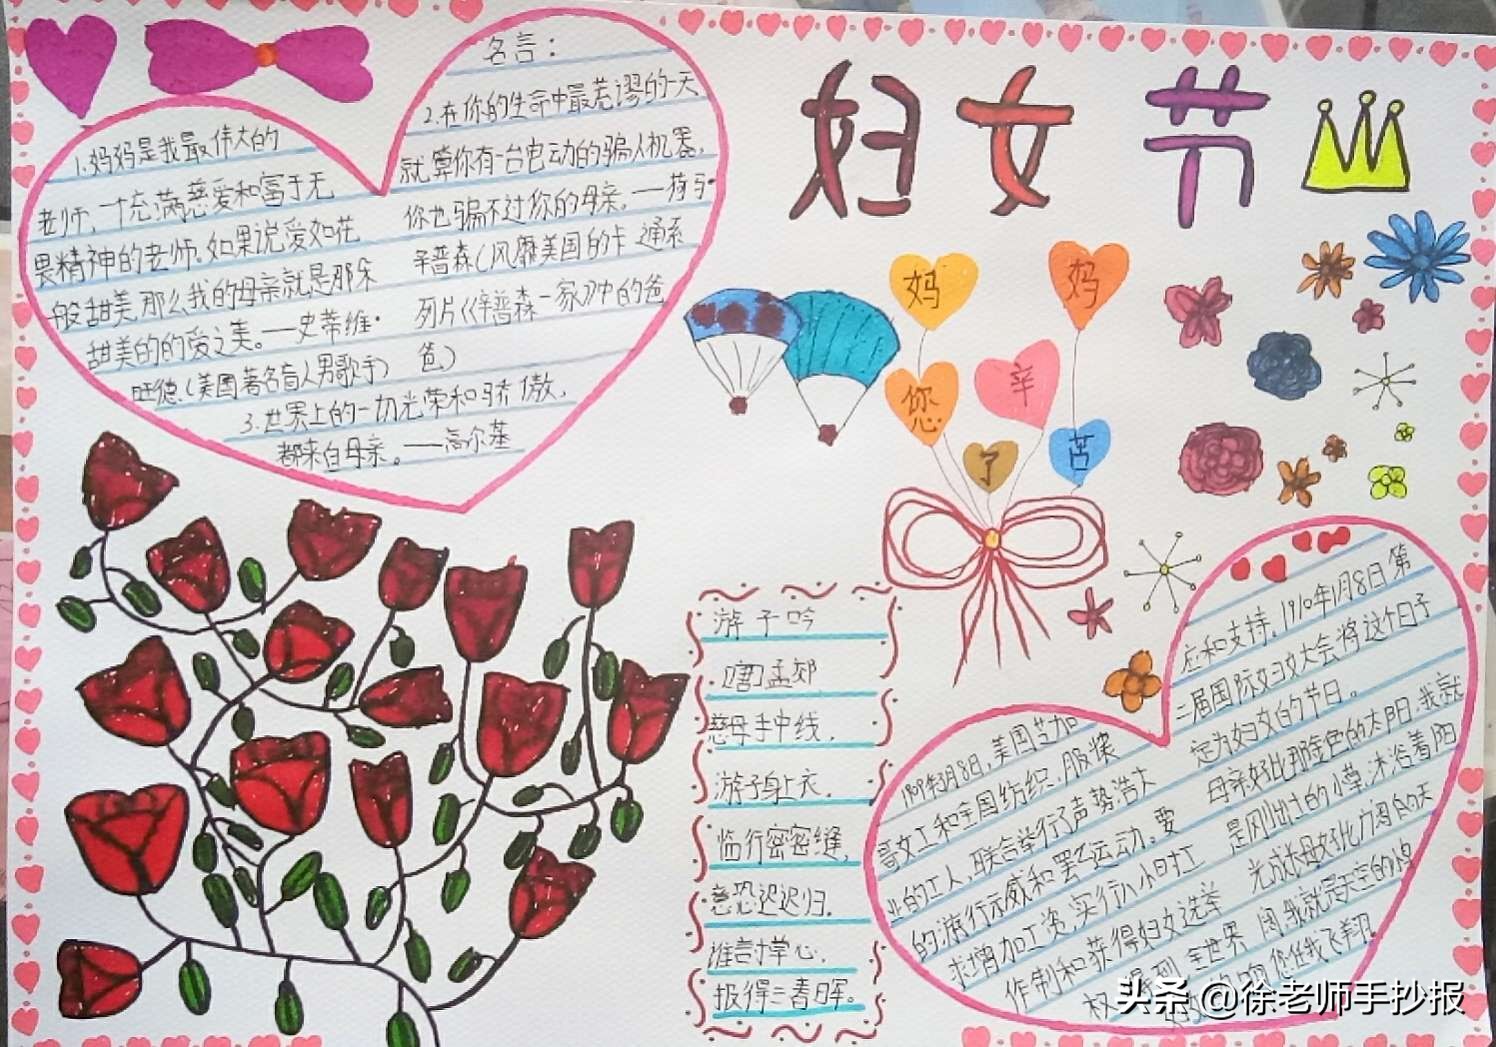 妇女节
名言：
1.妈妈是我最伟大的
老师，一个充满慈爱和富于无
畏精神的老师。如果说爱如花
般甜美，那么我的母亲就是那朵
甜美的的爱之美。——史蒂维·
旺德（美国著名盲人男歌手）
2.在你的生命中最荒谬的一天
就算你有一台电动的骗人机器，
你也骗不过你的母亲。——荷马·
辛普森（风靡美国的卡通系
列片《辛普森一家》中的爸
爸）
3.世界上的一切光荣和骄傲，
都来自母亲。——高尔基
妈妈
您辛
了苦
游子吟
[唐]孟郊
慈母手中线，
游子身上衣。
临行密密缝，
意恐迟迟归。
谁言寸草心，
报得三春晖。
1909年3月8日，美国芝加
哥女工和全国纺织、服装
业的工人，联合举行了声势浩大
的游行示威和罢工运动。要
求增加工资，实行八小时工
作制和获得妇女选举
权 得到全世界
应和支持。1910年1月8日第
二届国际妇女大会将这个日子
定为妇女的节日。
母亲好比那金色的太阳，我就
是刚出土的小草，沐浴着阳
光成长，母好比力阔的天
我就是天空的小鸟
您任我飞翔
头条 @徐老师手抄报